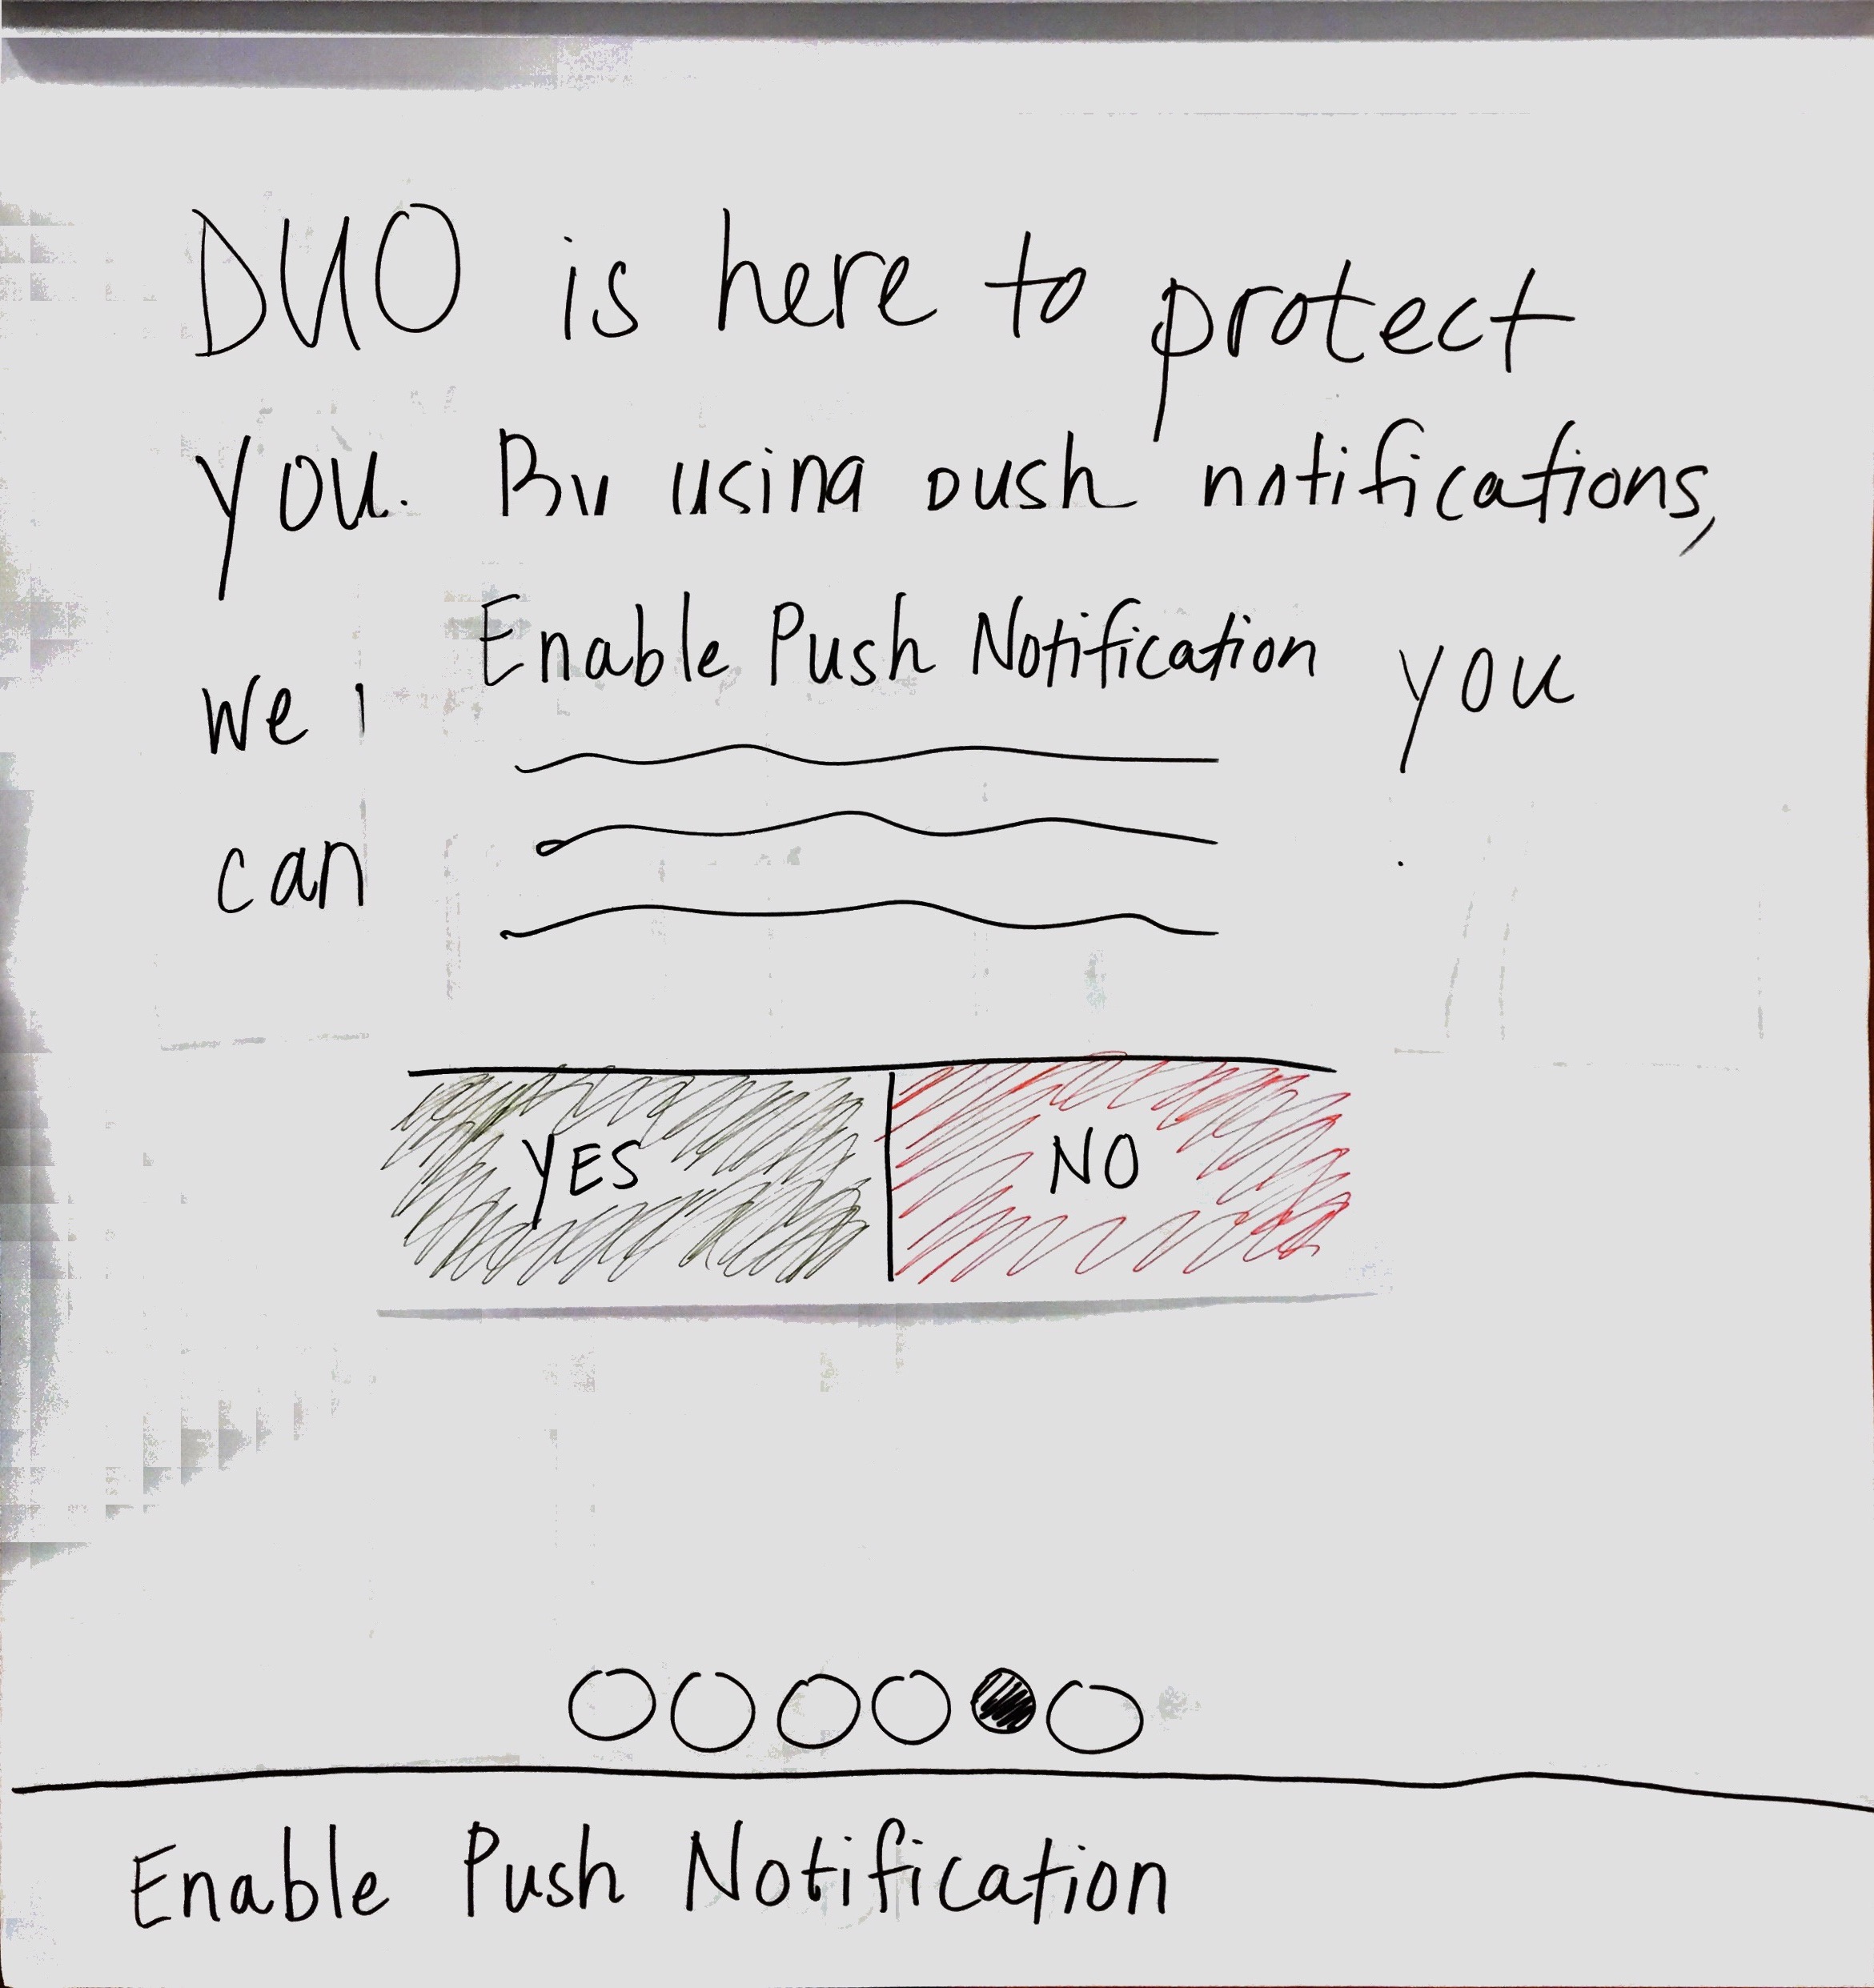 DUO is here to protect
you. By using push notifications,
we you
Enable Push Notification
can
YES NO
Enable Push Notification